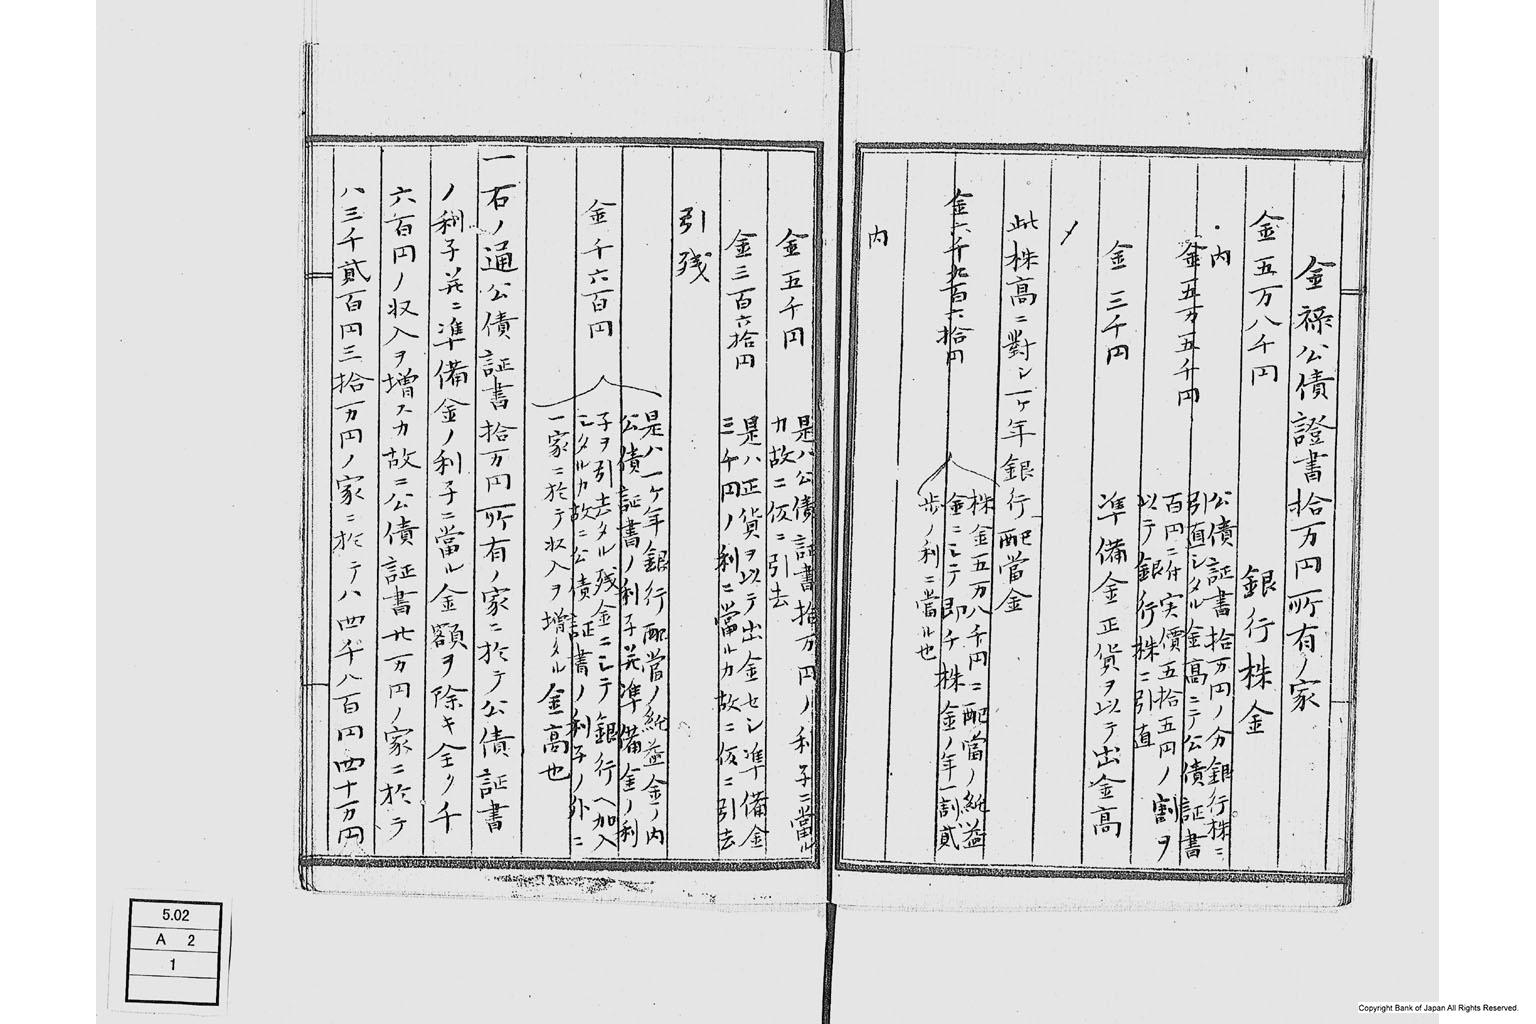 金禄公債證書拾万円所有ノ家
金五万八千円 銀行株金
内
金五万五千円
公債証書拾万円ノ分銀行株ニ
引直シタル金高ニテ公債証書
百円ニ付実價五拾五円ノ割ヲ
以テ銀行株ニ引直
金三千円 準備金正貨ヲ以テ出金高
〆
此株高ニ對シ一ヶ年銀行配當金
金六千九百六拾円
株金五万八千円ニ配當ノ純益
金ニシテ即チ株金ノ年一割貳
歩ノ利ニ當ル也
内
金五千円
是ハ公債証書拾万円ノ利子ニ當ル
カ故ニ仮ニ引去
金三百六拾円
是ハ正貨ヲ以テ出金セシ準備金
三千円ノ利ニ當ルカ故ニ仮ニ引去
引残
金千六百円
是ハ一ヶ年銀行配當ノ純益金ノ内
公債証書ノ利子并準備金ノ利
子ヲ引去タル残金ニシテ銀行ヘ加入
シタルカ故ニ公債証書ノ利子ノ外ニ
一家ニ於テ収入ヲ増タル金高也
一右ノ通公債証書拾万円所有ノ家ニ於テ公債証書
ノ利子并ニ準備金ノ利子ニ當ル金額ヲ除キ全ク千
六百円ノ収入ヲ増スカ故ニ公債証書廿万円ノ家ニ於テ
ハ三千貳百円三拾万円ノ家ニ於テハ四千八百円四十万円
5.02
A 2
1
Copyright Bank of Japan All Rights Reserved.